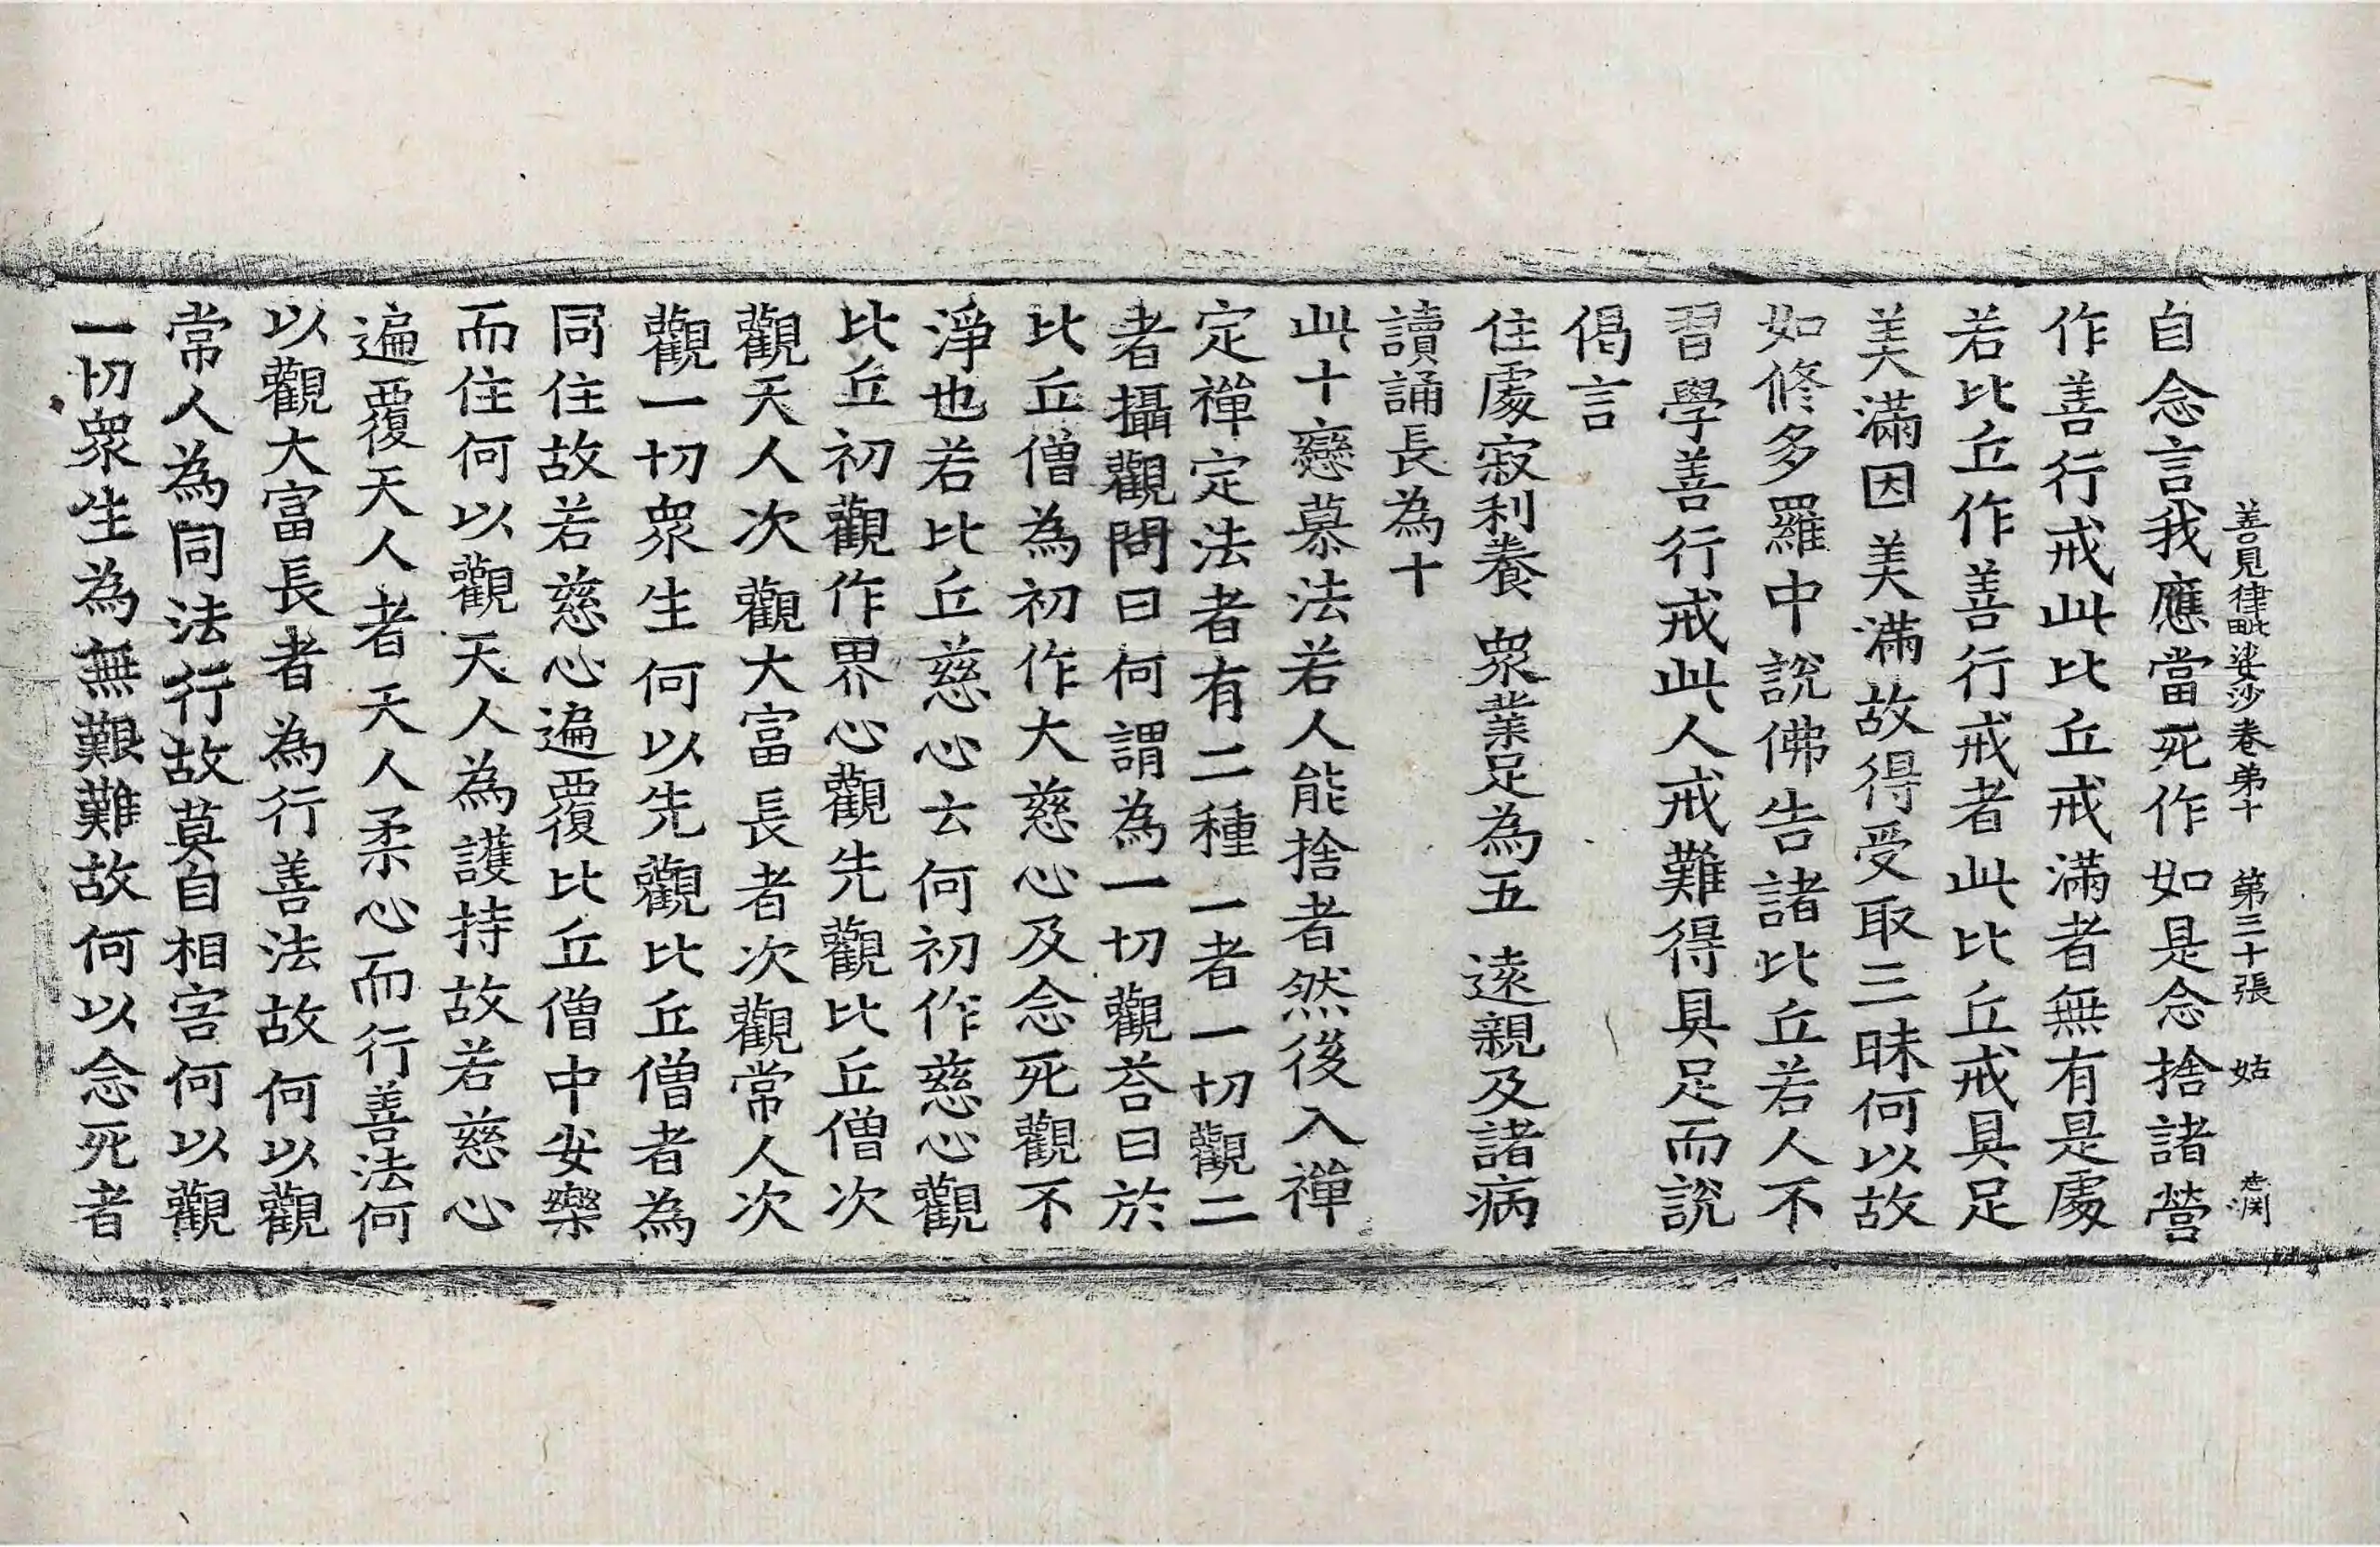 善見律毗婆沙卷弟十　第三十張　姑
自念言我應當死作如是念捨諸營
作善行戒此比丘戒滿者無有是處
若比丘作善行戒者此比丘戒具足
美滿因美滿故得受取三昧何以故
如修多羅中說佛告諸比丘若人不
習學善行戒此人戒難得具足而說
偈言
住處寂利養　眾業足為五　遠親及諸病
讀誦長為十
此十戀慕法若人能捨者然後入禪
定禪定法者有二種一者一切觀二
者攝觀問曰何謂為一切觀荅曰於
比丘僧為初作大慈心及念死觀不
淨也若比丘慈心云何初作慈心觀
比丘初觀作界心觀先觀比丘僧次
觀天人次觀大富長者次觀常人次
觀一切眾生何以先觀比丘僧者為
同住故若慈心遍覆比丘僧中安樂
而住何以觀天人為護持故若慈心
遍覆天人者天人柔心而行善法何
以觀大富長者為行善法故何以觀
常人為同法行故莫自相害何以觀
一切眾生為無艱難故何以念死者